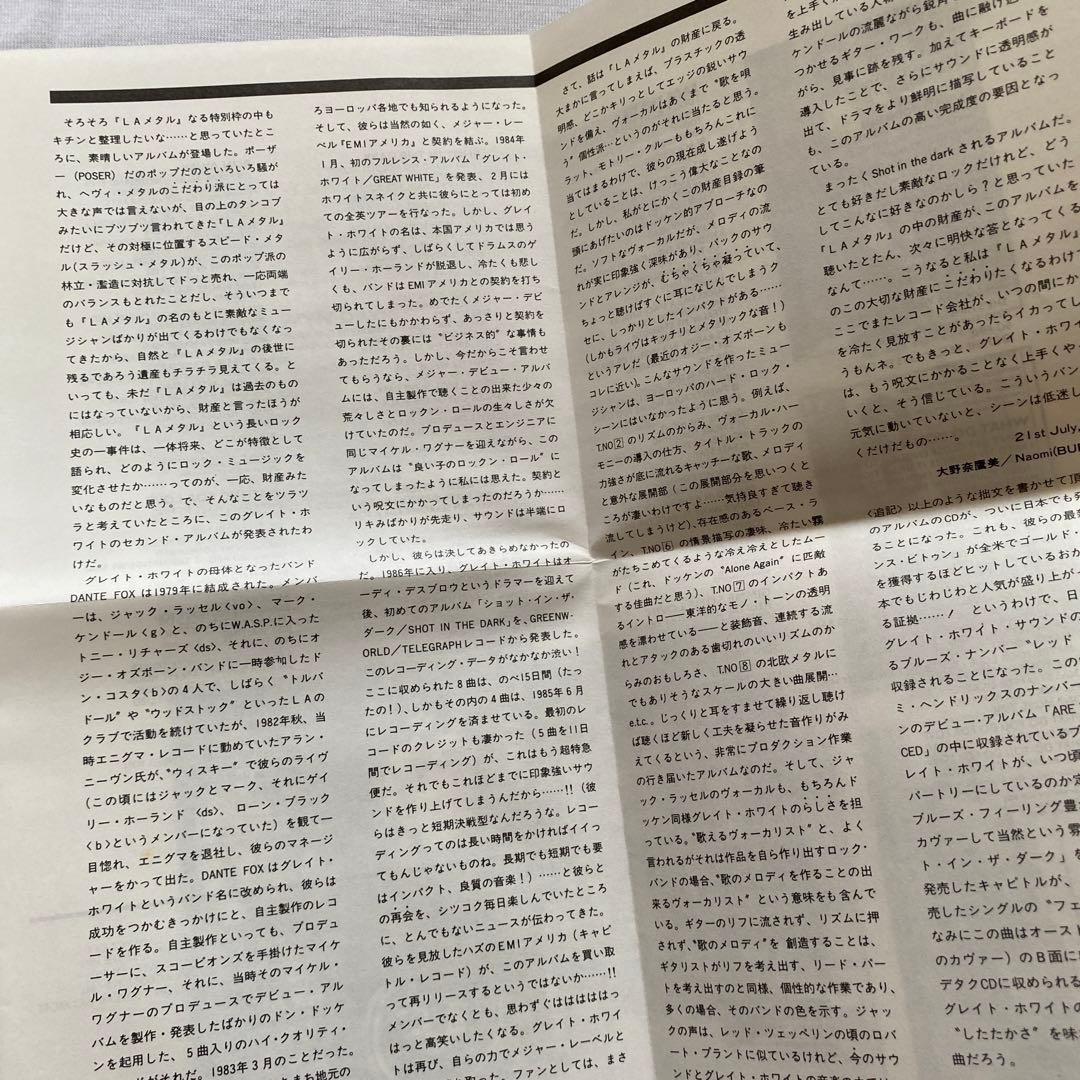 そろそろ『LAメタル』なる特別枠の中も
キチンと整理したいな……と思っていたとこ
ろに、素晴しいアルバムが登場した。ポーザ
ー（POSER）だのポップだのといろいろ騒が
れ、ヘヴィ・メタルのこだわり派にとっては
大きな声では言えないが、目の上のタンコブ
みたいにブツブツ言われてきた『LAメタル』
だけど、その対極に位置するスピード・メタ
ル（スラッシュ・メタル）が、このポップ派の
林立・濫造に対抗してドっと売れ、一応両端
のバランスもとれたことだし、そういつまで
も『LAメタル』の名のもとに素敵なミュー
ジシャンばかりが出てくるわけでもなくなっ
てきたから、自然と『LAメタル』の後世に
残るであろう遺産もチラチラ見えてくる。と
いっても、未だ『LAメタル』は過去のもの
にはなっていないから、財産と言ったほうが
相応しい。『LAメタル』という長いロック
史の一事件は、一体将来、どこが特徴として
語られ、どのようにロック・ミュージックを
変化させたか……ってのが、一応、財産みた
いなものだと思う。で、そんなことをツラツ
ラと考えていたところに、このグレイト・ホ
ワイトのセカンド・アルバムが発表されたわ
けだ。
グレイト・ホワイトの母体となったバンド
DANTE FOXは1979年に結成された。メンバ
ーは、ジャック・ラッセル〈vo〉、マーク・
ケンドール〈g〉と、のちにW.A.S.P.に入った
トニー・リチャーズ〈ds〉、それに、のちにオ
ジー・オズボーン・バンドに一時参加したド
ン・コスタ〈b〉の4人で、しばらく〝トルバ
ドール〟や〝ウッドストック〟といったLAの
クラブで活動を続けていたが、1982年秋、当
時エニグマ・レコードに勤めていたアラン・
ニーヴン氏が、〝ウィスキー〟で彼らのライヴ
（この頃にはジャックとマーク、それにゲイ
リー・ホーランド〈ds〉、ローン・ブラック
〈b〉というメンバーになっていた）を観て一
目惚れ、エニグマを退社し、彼らのマネージ
ャーをかって出た。DANTE FOXはグレイト・
ホワイトというバンド名に改められ、彼らは
成功をつかむきっかけにと、自主製作のレコ
ードを作る。自主製作といっても、プロデュ
ーサーに、スコーピオンズを手掛けたマイケ
ル・ワグナー、それに、当時そのマイケル・
ワグナーのプロデュースでデビュー・アル
バムを製作・発表したばかりのドン・ドッケ
ンを起用した、5曲入りのハイ・クオリティ・
がそれだ。1983年3月のことだった。
まち地元の
ろヨーロッパ各地でも知られるようになった。
そして、彼らは当然の如く、メジャー・レー
ベル『EMIアメリカ』と契約を結ぶ。1984年
1月、初のフルレンス・アルバム「グレイト・
ホワイト／GREAT WHITE」を発表、2月には
ホワイトスネイクと共に彼らにとっては初め
ての全英ツアーを行なった。しかし、グレイ
ト・ホワイトの名は、本国アメリカでは思う
ように広がらず、しばらくしてドラムスのゲ
イリー・ホーランドが脱退し、冷たくも悲し
くも、バンドはEMIアメリカとの契約を打ち
切られてしまった。めでたくメジャー・デビ
ューしたにもかかわらず、あっさりと契約を
切られたその裏には〝ビジネス的〟な事情も
あっただろう。しかし、今だからこそ言わせ
てもらうなら、メジャー・デビュー・アルバ
ムには、自主製作で聴くことの出来た少々の
荒々しさとロックン・ロールの生々しさが欠
けていたのだ。プロデュースとエンジニアに
同じマイケル・ワグナーを迎えながら、この
アルバムは〝良い子のロックン・ロール〟に
なってしまったように私には思えた。契約と
いう呪文にかかってしまったのだろうか……
リキみばかりが先走り、サウンドは半端にロ
ックしていた。
しかし、彼らは決してあきらめなかったの
だ。1986年に入り、グレイト・ホワイトはオ
ーディ・デスブロウというドラマーを迎えて
後、初めてのアルバム「ショット・イン・ザ・
ダーク／SHOT IN THE DARK」を、GREENW-
ORLD／TELEGRAPHレコードから発表した。
このレコーディング・データがなかなか渋い！
ここに収められた8曲は、のべ15日間（たっ
たの！）、しかもその内の4曲は、1985年6月
にレコーディングを済ませている。最初のレ
コードのクレジットも凄かった（5曲を11日
間でレコーディング）が、これはもう超特急
便だ。それでもこれほどまでに印象強いサウ
ンドを作り上げてしまうんだから……!!（彼
らはきっと短期決戦型なんだろうな。レコー
ディングってのは長い時間をかければイイっ
てもんじゃないものね。長期でも短期でも要
はインパクト、良質の音楽！）……と彼らと
の再会を、シツコク毎日楽しんでいたところ
に、とんでもないニュースが伝わってきた。
彼らを見放したハズのEMIアメリカ（キャピ
トル・レコード）が、このアルバムを買い取
って再リリースするというではないか……!!
メンバーでなくとも、思わずぐはははははは
はっと高笑いしたくなる。グレイト・ホワイ
トは再び、自らの力でメジャー・レーベルと
取った。ファンとしては、まさ
さて、話は『LAメタル』の財産に戻る。
大まかに言ってしまえば、プラスチックの透
明感、どこかキリっとしてエッジの鋭いサウ
ンドを備え、ヴォーカルはあくまで〝歌を唄
う〟個性派…というのがそれに当たると思う。
ラット、モトリー・クルーももちろんこれに
当てはまるわけで、彼らの現在成し遂げよう
としていることは、けっこう偉大なことなの
だ。しかし、私がとにかくこの財産目録の筆
頭にあげたいのはドッケン的アプローチなの
だ。ソフトなヴォーカルだが、メロディの流
れが実に印象強く深味があり、バックのサウ
ンドとアレンジが、むちゃくちゃ凝っていて、
ちょっと聴けばすぐに耳になじんでしまうク
せに、しっかりとしたインパクトがある……
（しかもライヴはキッチリとメタリックな音！）
というアレだ（最近のオジー・オズボーンも
コレに近い）。こんなサウンドを作ったミュー
ジシャンは、ヨーロッパのハード・ロック・
シーンにはいなかったように思う。例えば、
T.NO②のリズムのからみ、ヴォーカル・ハー
モニーの導入の仕方、タイトル・トラックの
力強さが底に流れるキャッチーな歌、メロディ
と意外な展開部（この展開部分を思いつくと
ころが凄いわけですよ……気持良すぎて聴き
流してしまうけど）、存在感のあるベース・ラ
イン、T.NO⑥の情景描写の凄味、冷たい霧
がたちこめてくるような冷え冷えとしたムー
ド（これ、ドッケンの〝Alone Again〟に匹敵
する佳曲だと思う）、T.NO⑦のインパクトあ
るイントロ――東洋的なモノ・トーンの透明
感を漂わせている――と装飾音、連続する流
れとアタックのある歯切れのいいリズムのか
らみのおもしろさ、T.NO⑧の北欧メタルに
でもありそうなスケールの大きい曲展開…
e.t.c.。じっくりと耳をすませて繰り返し聴け
ば聴くほど新しく工夫を凝らせた音作りがみ
えてくるという、非常にプロダクション作業
の行き届いたアルバムなのだ。そして、ジャ
ック・ラッセルのヴォーカルも、もちろんド
ッケン同様グレイト・ホワイトのらしさを担
っている。〝歌えるヴォーカリスト〟と、よく
言われるがそれは作品を自ら作り出すロック・
バンドの場合、〝歌のメロディを作ることの出
来るヴォーカリスト〟という意味をも含んで
いる。ギターのリフに流されず、リズムに押
されず、〝歌のメロディ〟を創造することは、
ギタリストがリフを考え出す、リード・パー
トを考え出すのと同様、個性的な作業であり、
多くの場合、そのバンドの色を示す。ジャッ
クの声は、レッド・ツェッペリンの頃のロバ
ート・プラントに似ているけれど、今のサウ
ンドとグレイト・ホワイトの音楽の
を上手く
生み出している人物
ケンドールの流麗ながら鋭角
つかせるギター・ワークも、曲に融け込
がら、見事に跡を残す。加えてキーボードを
導入したことで、さらにサウンドに透明感が
出て、ドラマをより鮮明に描写していること
も、このアルバムの高い完成度の要因となっ
ている。
まったくShot in the darkされるアルバムだ。
とても好きだし素敵なロックだけれど、どう
してこんなに好きなのかしら？と思っていた
『LAメタル』の中の財産が、このアルバムを
聴いたとたん、次々に明快な答となってくる
なんて……。こうなると私は『LAメタル』
のこの大切な財産にこだわりたくなるわけで
ここでまたレコード会社が、いつの間にか
を冷たく見放すことがあったらイカってし
うもんネ。でもきっと、グレイト・ホワ
は、もう呪文にかかることなく上手くやっ
いくと、そう信じている。こういうバン
元気に動いていないと、シーンは低迷し
くだけだもの……。
21st July,
大野奈鷹美／Naomi(BUR
〈追記〉以上のような拙文を書かせて頂
のアルバムのCDが、ついに日本でも発
ることになった。これも、彼らの最新
ンス・ビトゥン」が全米でゴールド・
を獲得するほどヒットしているおか
本でもじわじわと人気が盛り上が
る証拠……！というわけで、日
グレイト・ホワイト・サウンドの
るブルーズ・ナンバー〝レッド
収録されることになった。この
ミ・ヘンドリックスのナンバー
ンのデビュー・アルバム「ARE
CED」の中に収録されているブ
レイト・ホワイトが、いつ頃
パートリーにしているのか定
ブルーズ・フィーリング豊
カヴァーして当然という雰
ト・イン・ザ・ダーク」を
発売したキャピトルが、
売したシングルの〝フェ
なみにこの曲はオースト
のカヴァー）のB面に
デタクCDに収められる
グレイト・ホワイトの
〝したたかさ〟を味
曲だろう。